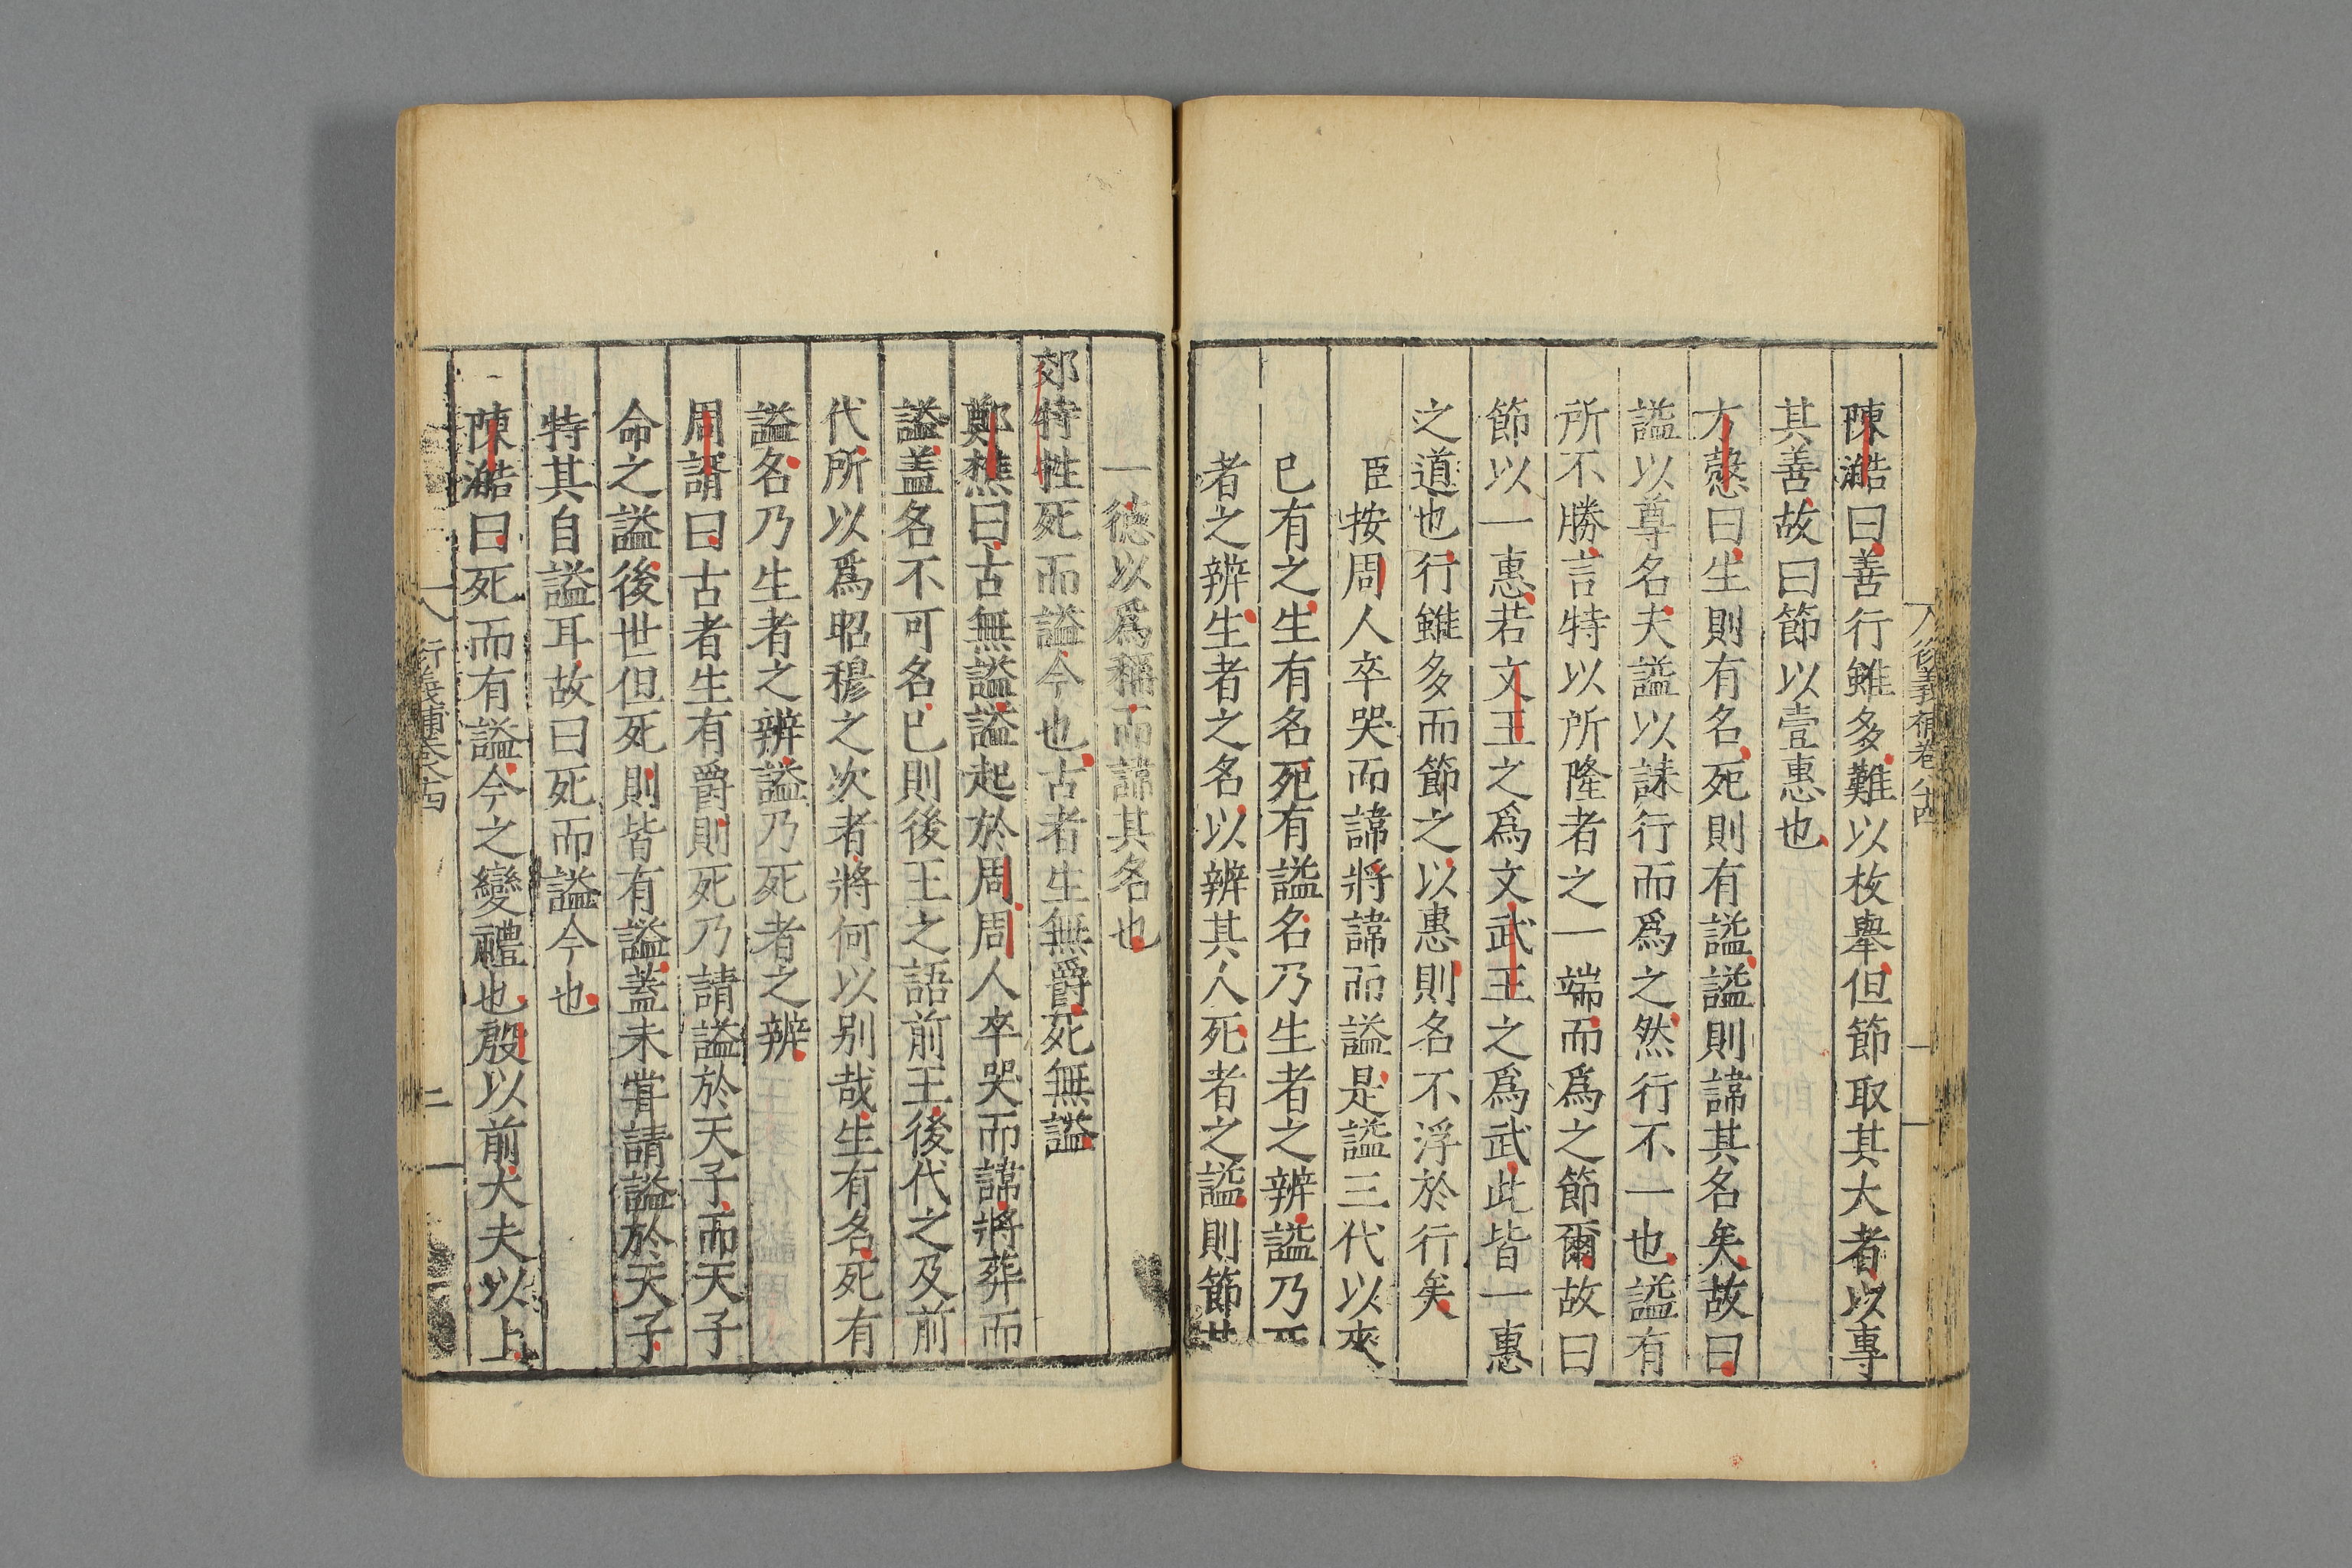 陳澔曰善行雖多難以枚舉但節取其大者以專
其善故曰節以壹惠也
方慤曰生則有名死則有謚謚則諱其名矣故曰
謚以尊名夫謚以誄行而爲之然行不一也謚有
所不勝言特以所隆者之一端而爲之節爾故曰
節以一惠若文王之爲文武王之爲武此皆一惠
之道也行雖多而節之以惠則名不浮於行矣
臣按周人卒哭而諱將諱而謚是謚三代以來
已有之生有名死有謚名乃生者之辨謚乃死
者之辨生者之名以辨其人死者之謚則節其
一德以爲稱而諱其名也
郊特牲死而謚今也古者生無爵死無謚
鄭樵曰古無謚謚起於周周人卒哭而諱將葬而
謚蓋名不可名已則後王之語前王後代之及前
代所以爲昭穆之次者將何以别哉生有名死有
謚名乃生者之辨謚乃死者之辨
周諝曰古者生有爵則死乃請謚於天子而天子
命之謚後世但死則皆有謚蓋未甞請謚於天子
特其自謚耳故曰死而謚今也
陳澔曰死而有謚今之變禮也殷以前大夫以上
衍義補卷八十四
二